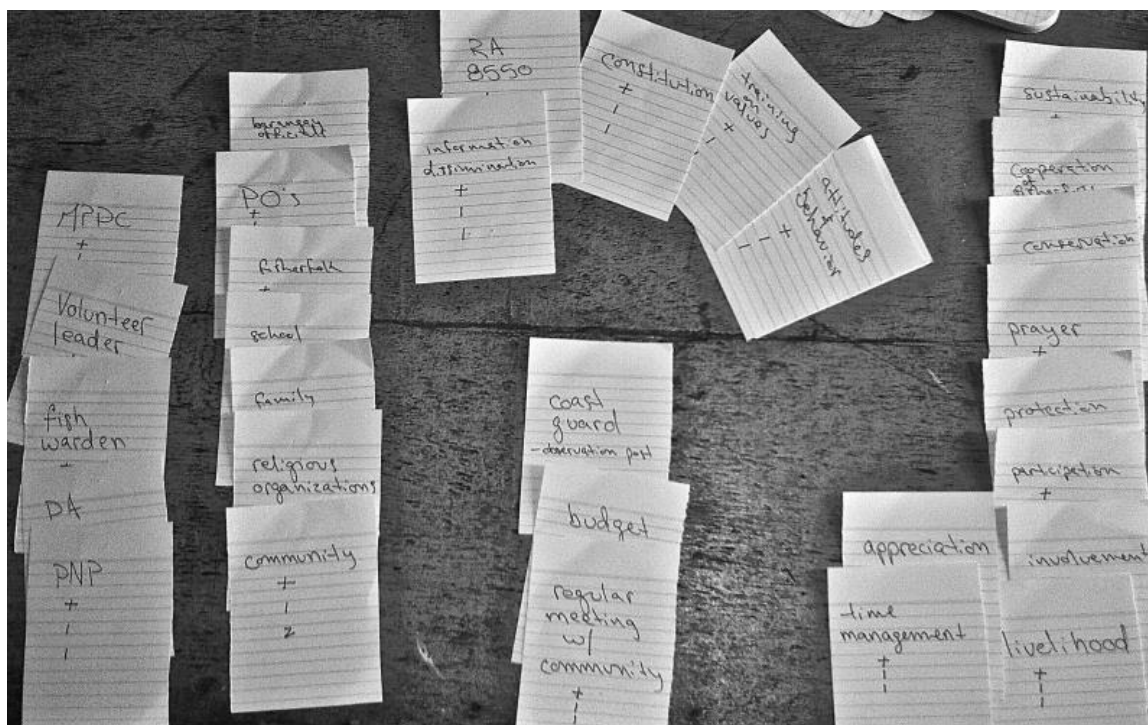 MPDC
+
Volunteer
leader
fish
warden
DA
PNP
+
1
1
barangay
officials
PO's
+
fisherfolk
+
school
family
religious
organizations
community
+
1
2
RA
8550
information
dissimination
+
1
1
constitution
+
1
1
training
on
values
+
1
1
attitudes
+
behavior
+
1
1
coast
guard
-observation post
budget
regular
meeting
w/
community
+
1
1
sustainability
+
Cooperation
of
conservation
prayer
+
protection
participation
+
involvement
livelihood
+
1
1
appreciation
time
management
+
1
1